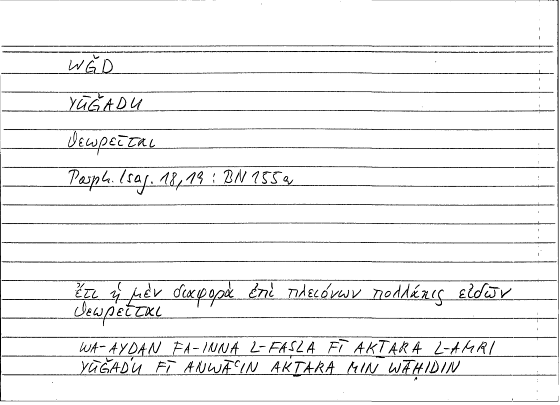 WǦD
YŪǦADU
θεωρεῖται
Porph. Isag. 18,19 : BN 155a
ἔτι ἡ μὲν διαφορὰ ἐπὶ πλειόνων πολλάκις εἰδῶν
θεωρεῖται
WA-AYḌAN FA-INNA L-FAṢLA FĪ AKṮARA L-AMRI
YŪǦADU FĪ ANWĀʿIN AKṮARA MIN WĀḤIDIN